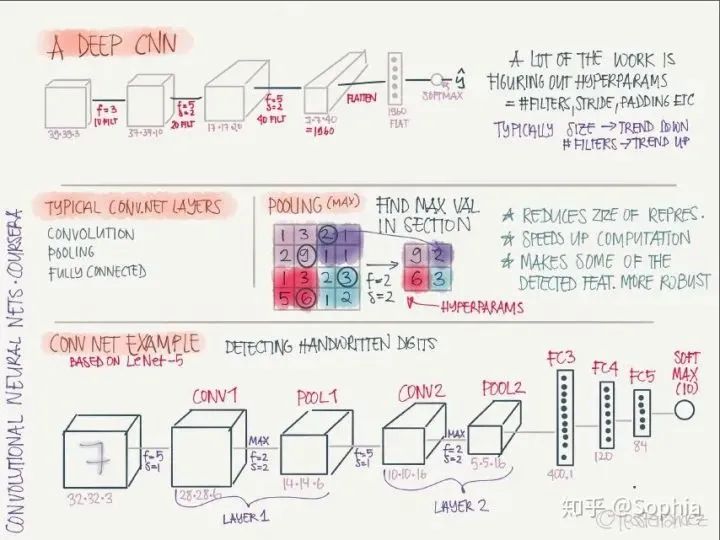 A DEEP CNN
f=3
10 FILT
f=5
s=2
20 FILT
f=5
s=2
40 FILT
FLATTEN
SOFTMAX
ŷ
39·39·3
37·37·10
17·17·20
7·7·40
=1960
1960
FLAT
A LOT OF THE WORK IS
FIGURING OUT HYPERPARAMS
= #FILTERS, STRIDE, PADDING ETC
TYPICALLY SIZE → TREND DOWN
#FILTERS → TREND UP
TYPICAL CONV.NET LAYERS
CONVOLUTION
POOLING
FULLY CONNECTED
POOLING (MAX)
1 3 2 1
2 9 1 1
1 3 2 3
5 6 1 2
FIND MAX VAL
IN SECTION
f=2
s=2
9 2
6 3
HYPERPARAMS
★ REDUCES SIZE OF REPRES.
★ SPEEDS UP COMPUTATION
★ MAKES SOME OF THE
DETECTED FEAT. MORE ROBUST
CONV NET EXAMPLE
DETECTING HANDWRITTEN DIGITS
BASED ON LeNet-5
CONV1
POOL1
CONV2
POOL2
FC3
FC4
FC5
SOFT
MAX
(10)
7
f=5
s=1
MAX
f=2
s=2
f=5
s=1
MAX
f=2
s=2
32·32·3
28·28·6
14·14·6
10·10·16
5·5·16
400,1
120
84
LAYER 1
LAYER 2
CONVOLUTIONAL NEURAL NETS · COURSERA
知乎 @Sophia